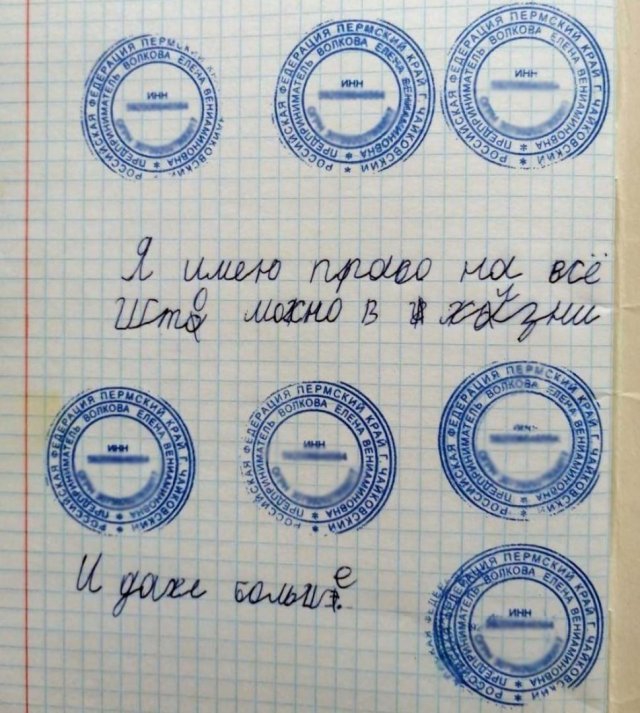 РОССИЙСКАЯ ФЕДЕРАЦИЯ ПЕРМСКИЙ КРАЙ
ПРЕДПРИНИМАТЕЛЬ ВОЛКОВА ЕЛЕНА ВЕНИАМИНОВНА *
ИНН
РОССИЙСКАЯ ФЕДЕРАЦИЯ ПЕРМСКИЙ КРАЙ Г. ЧАЙКОВСКИЙ
ПРЕДПРИНИМАТЕЛЬ ВОЛКОВА ЕЛЕНА ВЕНИАМИНОВНА *
ИНН
РОССИЙСКАЯ ФЕДЕРАЦИЯ ПЕРМСКИЙ КРАЙ Г. ЧАЙКОВСКИЙ
ПРЕДПРИНИМАТЕЛЬ ВОЛКОВА ЕЛЕНА ВЕНИАМИНОВНА *
ИНН
Я имею право на всё
Што можно в жизни
РОССИЙСКАЯ ФЕДЕРАЦИЯ ПЕРМСКИЙ КРАЙ Г. ЧАЙКОВСКИЙ
ПРЕДПРИНИМАТЕЛЬ ВОЛКОВА ЕЛЕНА ВЕНИАМИНОВНА *
ИНН
РОССИЙСКАЯ ФЕДЕРАЦИЯ ПЕРМСКИЙ КРАЙ Г. ЧАЙКОВСКИЙ
ПРЕДПРИНИМАТЕЛЬ ВОЛКОВА ЕЛЕНА ВЕНИАМИНОВНА *
ИНН
РОССИЙСКАЯ ФЕДЕРАЦИЯ ПЕРМСКИЙ КРАЙ Г. ЧАЙКОВСКИЙ
ПРЕДПРИНИМАТЕЛЬ ВОЛКОВА ЕЛЕНА ВЕНИАМИНОВНА *
И даже больше.
РОССИЙСКАЯ ФЕДЕРАЦИЯ ПЕРМСКИЙ КРАЙ Г. ЧАЙКОВСКИЙ
ПРЕДПРИНИМАТЕЛЬ ВОЛКОВА ЕЛЕНА ВЕНИАМИНОВНА *
ИНН